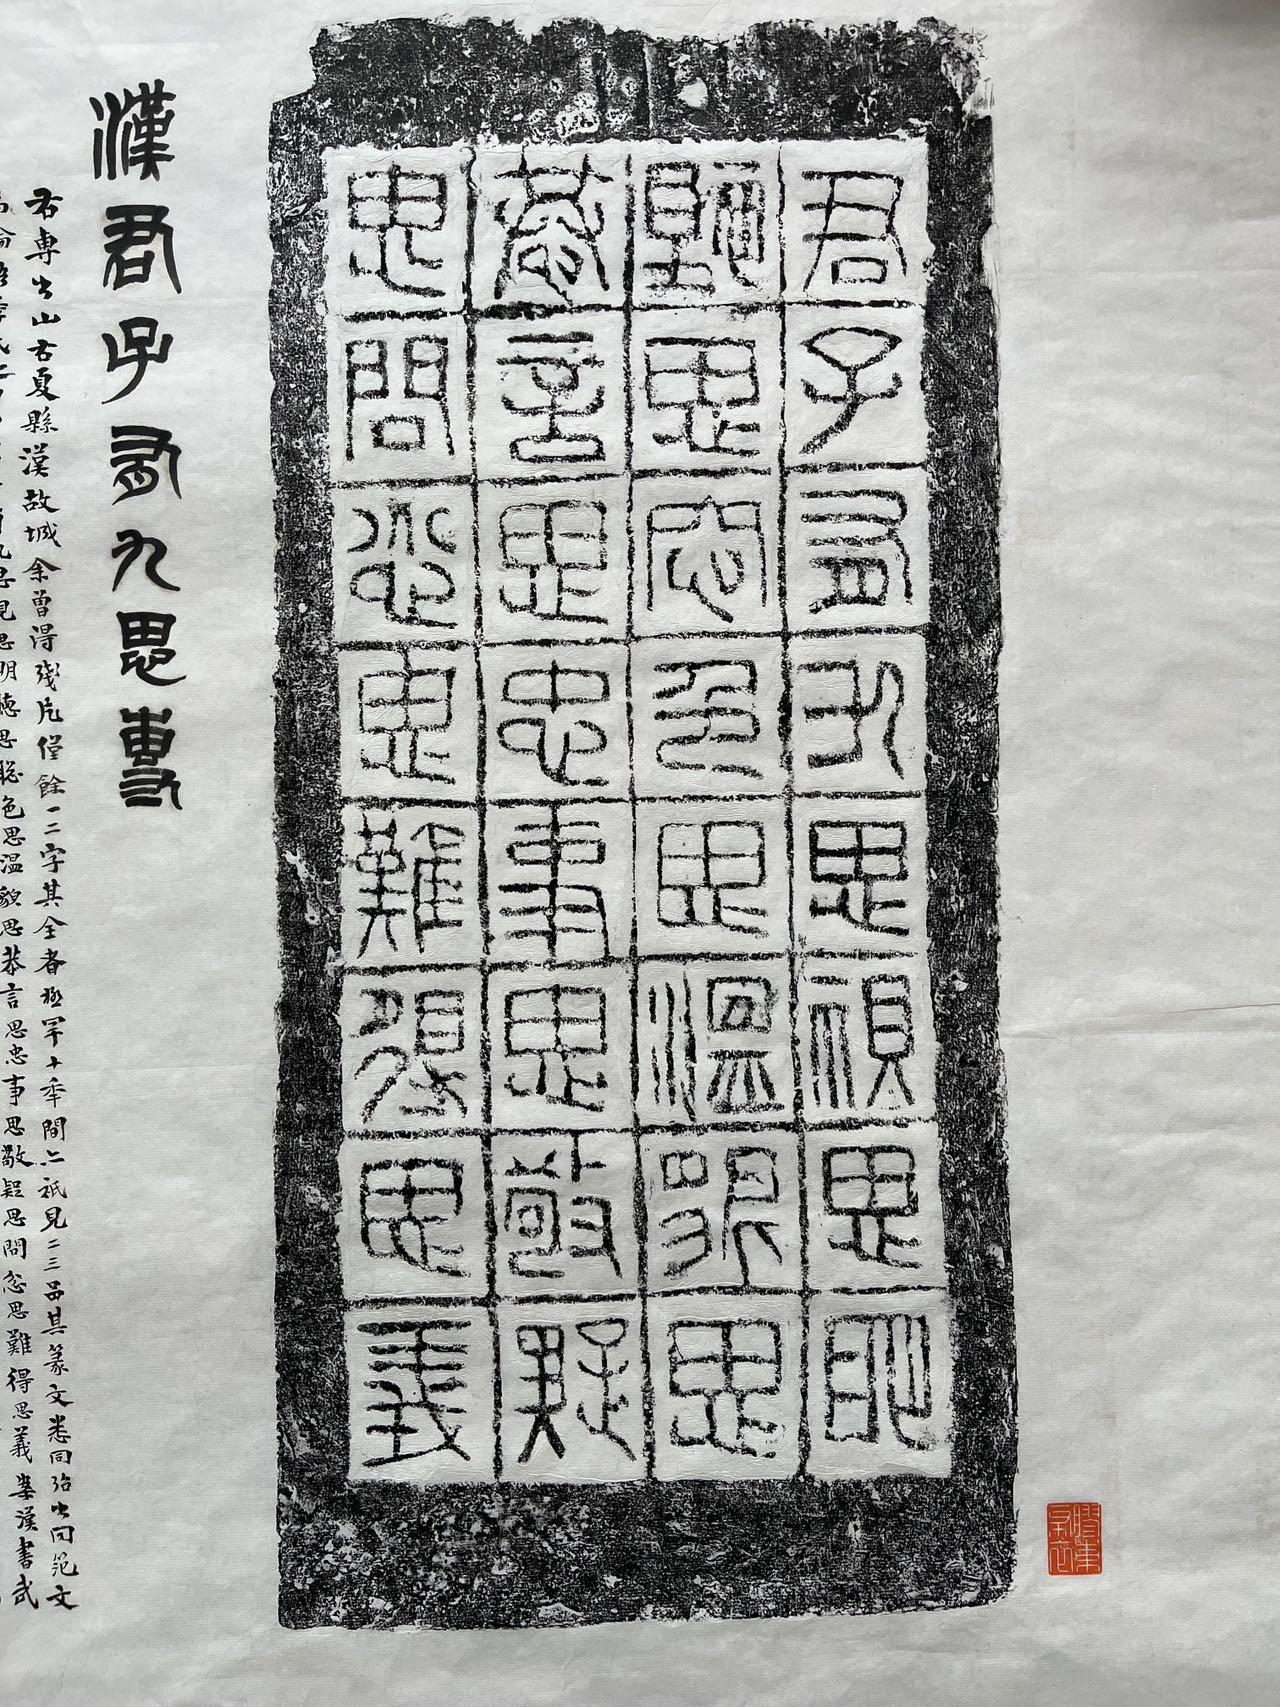 君子有九思視思明
聽思忩色思溫貌思
恭言思忠事思敬疑
思問忿思難得思義
漢君子有九思專
右專出山右夏縣漢故城余曾得殘片僅餘一二字其全者極罕十年間亦祇見二三品其篆文悉同殆出同范文
論語季氏有九思視思明聽思聰色思溫貌思恭言思忠事思敬疑思問忿思難得思義案漢書武